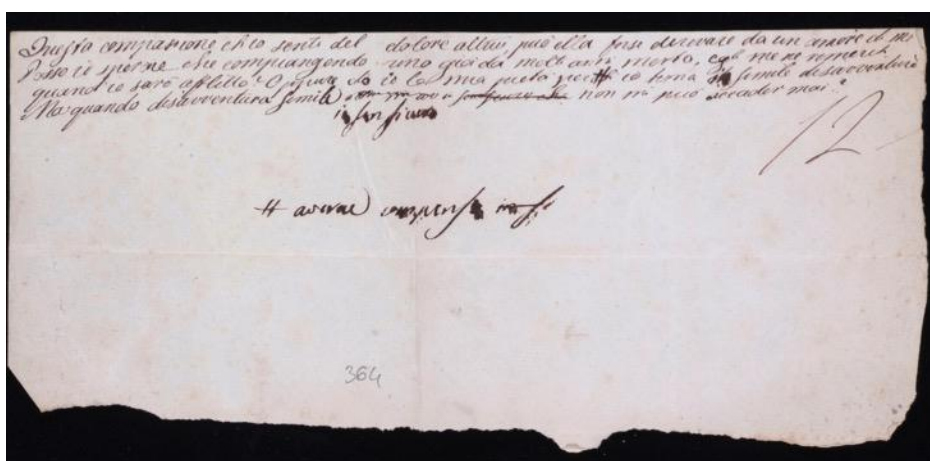 Questa compassione ch'io senti del dolore altrui, può ella forse derivare da un amore di me
Posso io sperare che compiangendo uno già da molt'anni morto, egli me ne
quand io sarò afflitto? Oppure do io la mia pietà per # io tema simile disavventura
Ma quando disavventura simile non mi può accader mai?
12
# averne compenso
364